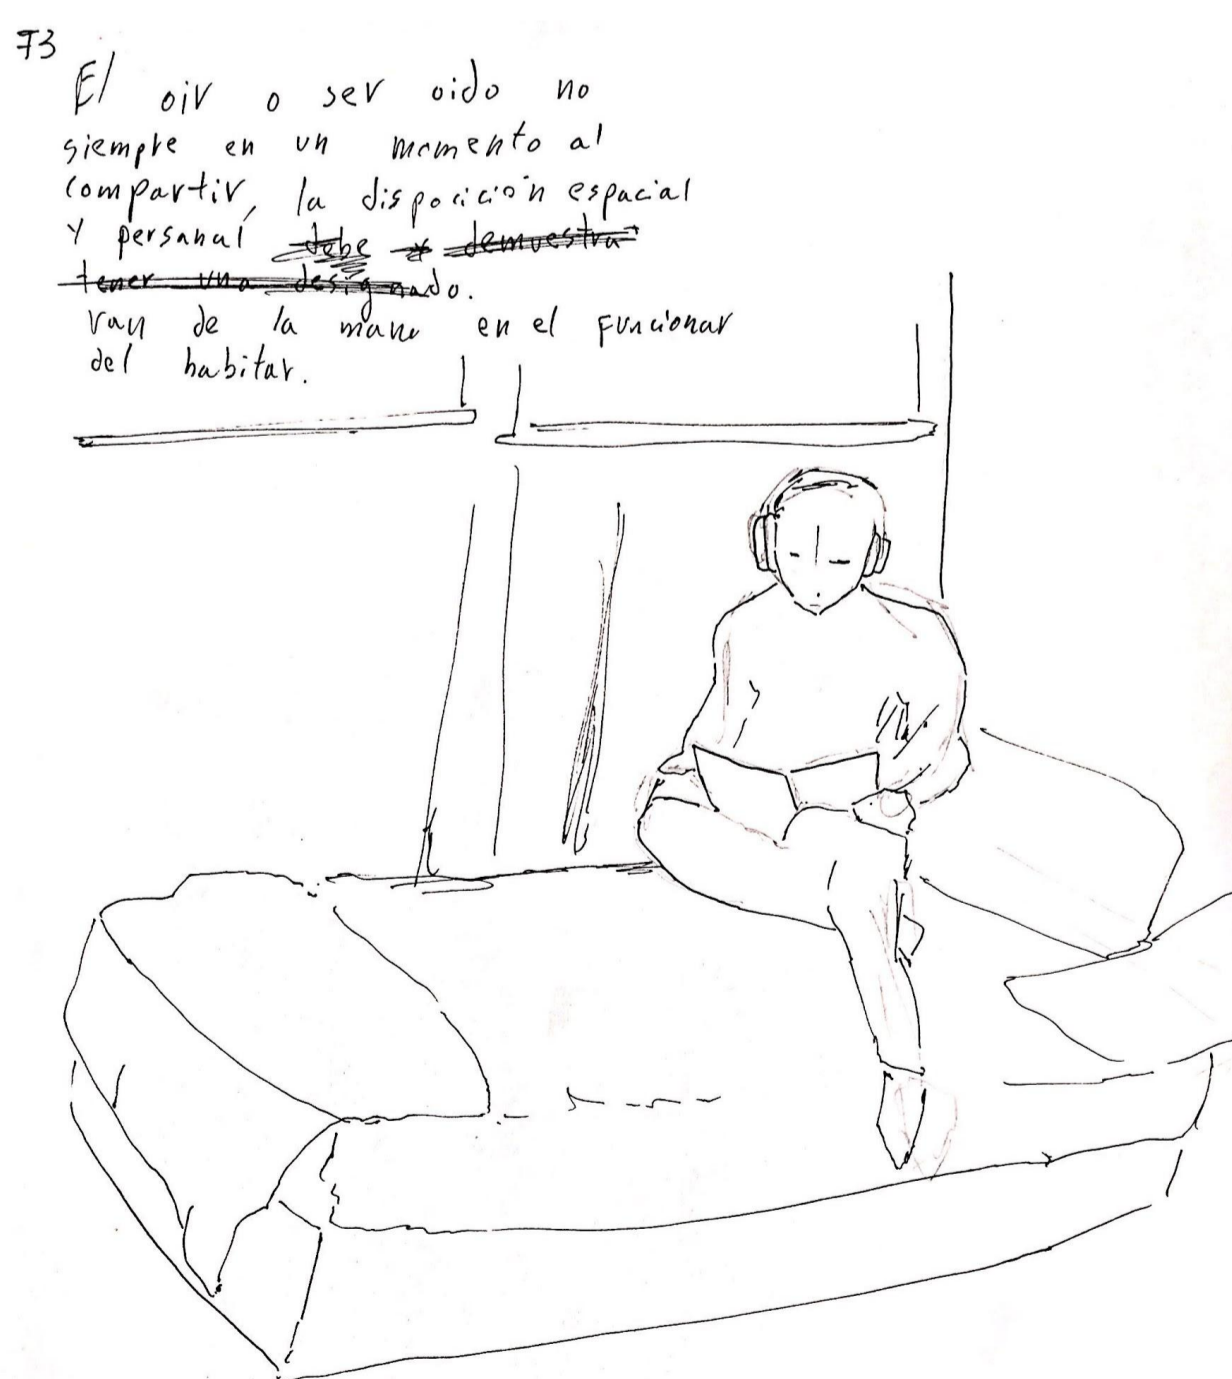 73
El oir o ser oido no
siempre en un momento al
compartir, la disposición espacial
y personal debe y demuestra
tener una designado.
van de la mano en el funcionar
del habitar.